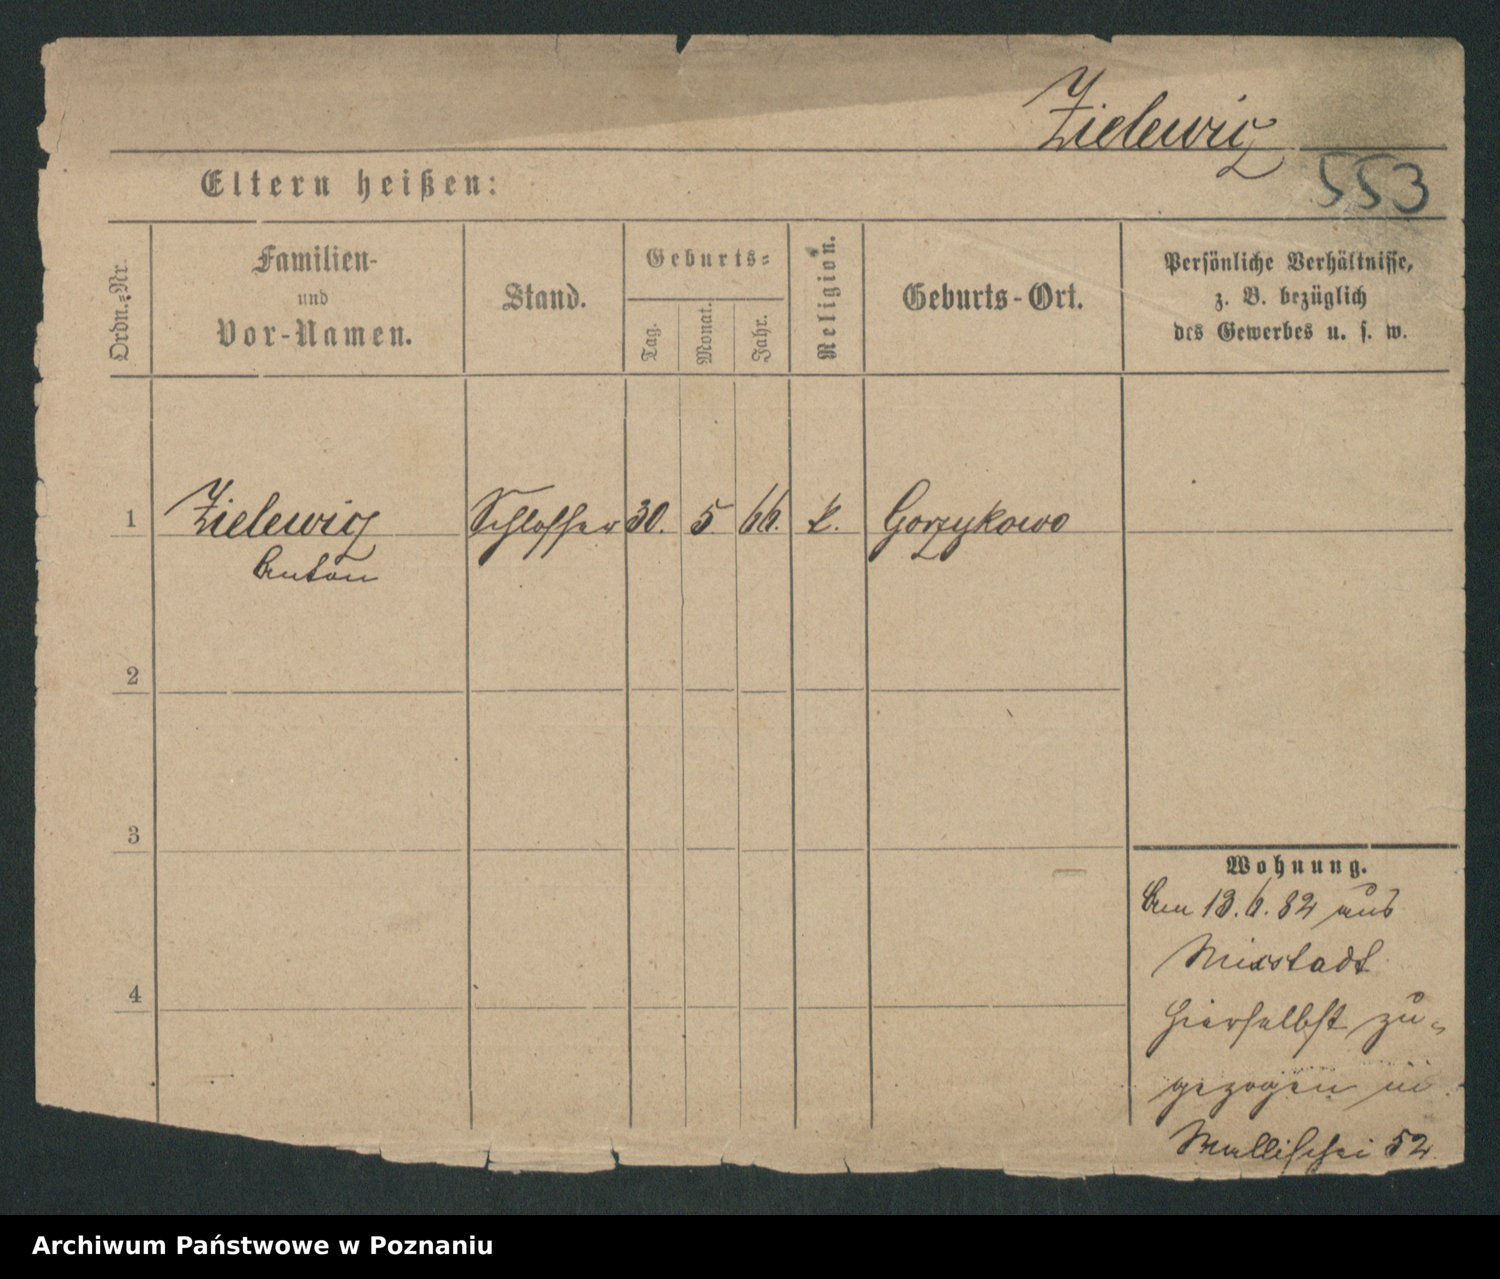 Zielewicz
553
Eltern heißen:
Ordn.=Nr.
Familien-
und
Vor-Namen.
Stand.
Geburts=
Tag.
Monat.
Jahr.
Religion.
Geburts-Ort.
Persönliche Verhältnisse,
z. B. bezüglich
des Gewerbes u. s. w.
1 Zielewicz Schlosser 30. 5. 66. k. Gorzykowo
Anton
2
3
4
Wohnung.
Am 13. 6. 82 aus
Mixstadt
hierselbst zu=
gezogen in
Wallischei 52
Archiwum Państwowe w Poznaniu